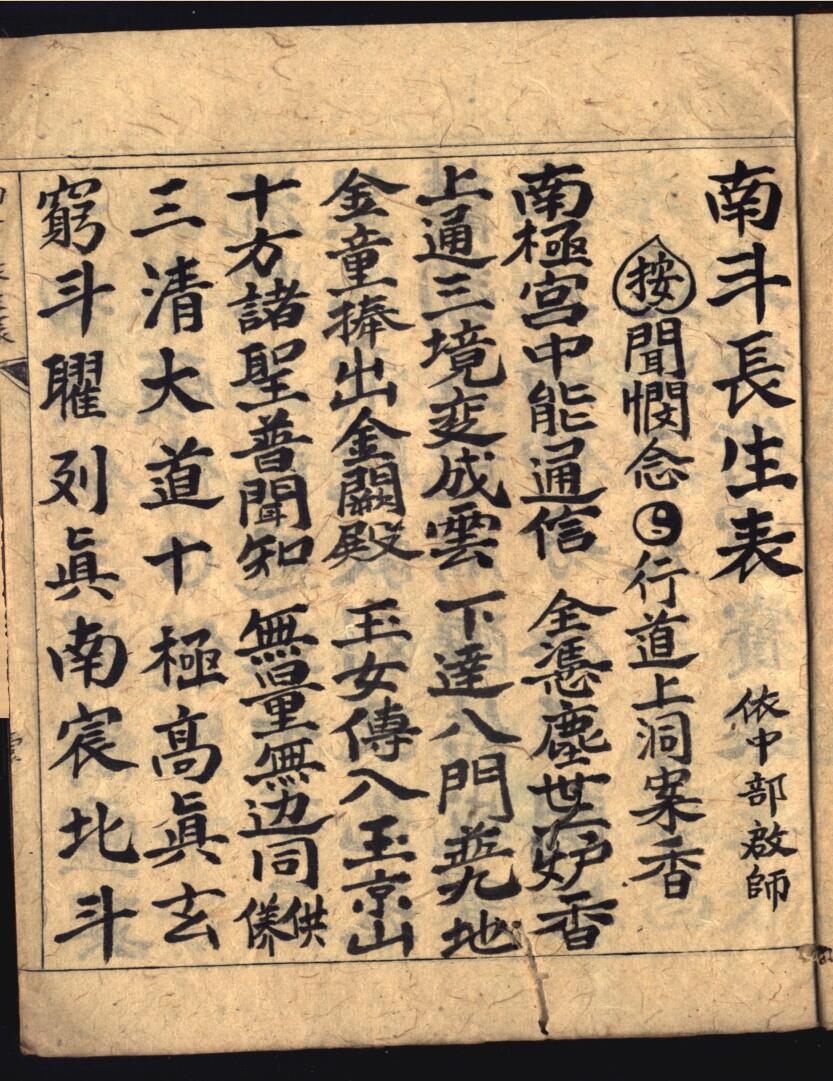 南斗長生表 依中部啟師
按聞憫念行道上洞案香
南極宮中能通信 全憑塵世一炉香
上通三境変成雲 下達八門並九地
金童捧出金闕殿 玉女傳入玉京山
十方諸聖普聞知 無量無边同供養
三清大道十極高眞玄
窮斗曜列眞南宸北斗